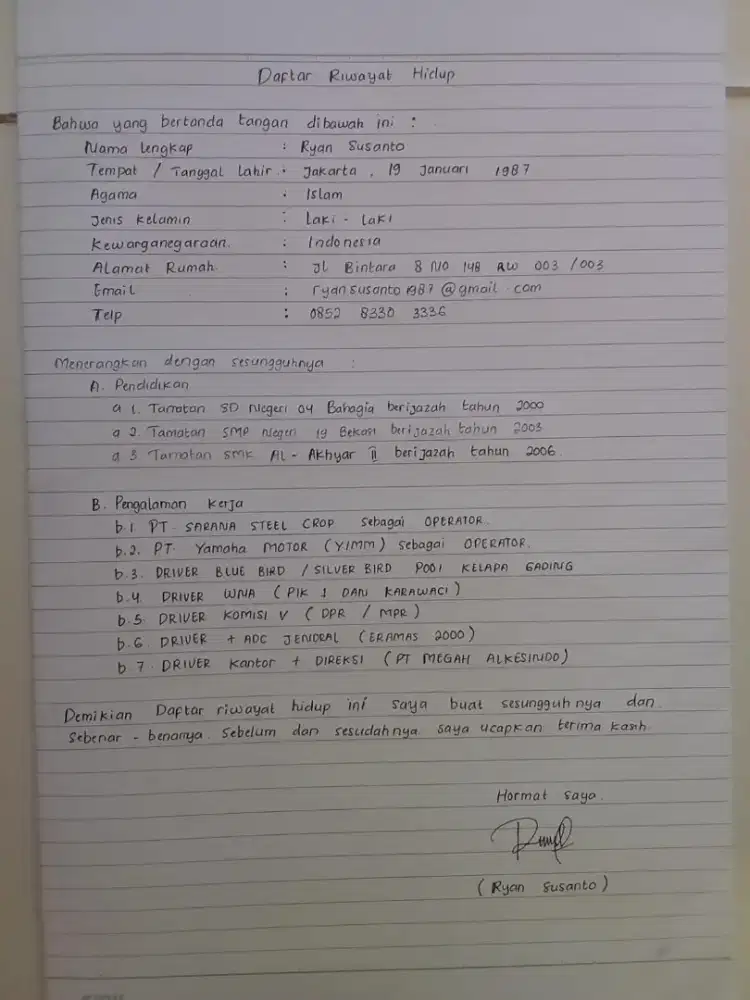 Daftar Riwayat Hidup
Bahwa yang bertanda tangan dibawah ini :
Nama lengkap : Ryan Susanto
Tempat / Tanggal Lahir : Jakarta , 19 Januari 1987
Agama : Islam
Jenis Kelamin : Laki - Laki
Kewarganegaraan. : Indonesia
Alamat Rumah. : Jl Bintara 8 NO 148 RW 003 / 003
Email : ryansusanto1987@gmail.com
Telp : 0852 8330 3336
Menerangkan dengan sesungguhnya :
A. Pendidikan
a 1. Tamatan SD Negeri 04 Bahagia berijazah tahun 2000
a 2. Tamatan SMP Negeri 19 Bekasi berijazah tahun 2003
a 3. Tamatan SMK AL - Akhyar II berijazah tahun 2006.
B. Pengalaman Kerja
b.1. PT. SARANA STEEL CROP sebagai OPERATOR.
b.2. PT. Yamaha MOTOR (YIMM) sebagai OPERATOR.
b.3. DRIVER BLUE BIRD / SILVER BIRD POOl KELAPA GADING
b.4. DRIVER WNA ( PIK 1 DAN KARAWACI )
b.5. DRIVER KOMISI V ( DPR / MPR )
b.6. DRIVER + ADC JENDRAL (ERAMAS 2000 )
b 7. DRIVER Kantor + DIREKSI ( PT MEGAH ALKESINDO )
Demikian Daftar riwayat hidup ini saya buat sesungguhnya dan
sebenar - benarnya. Sebelum dan sesudahnya saya ucapkan terima kasih.
Hormat saya.
( Ryan Susanto )